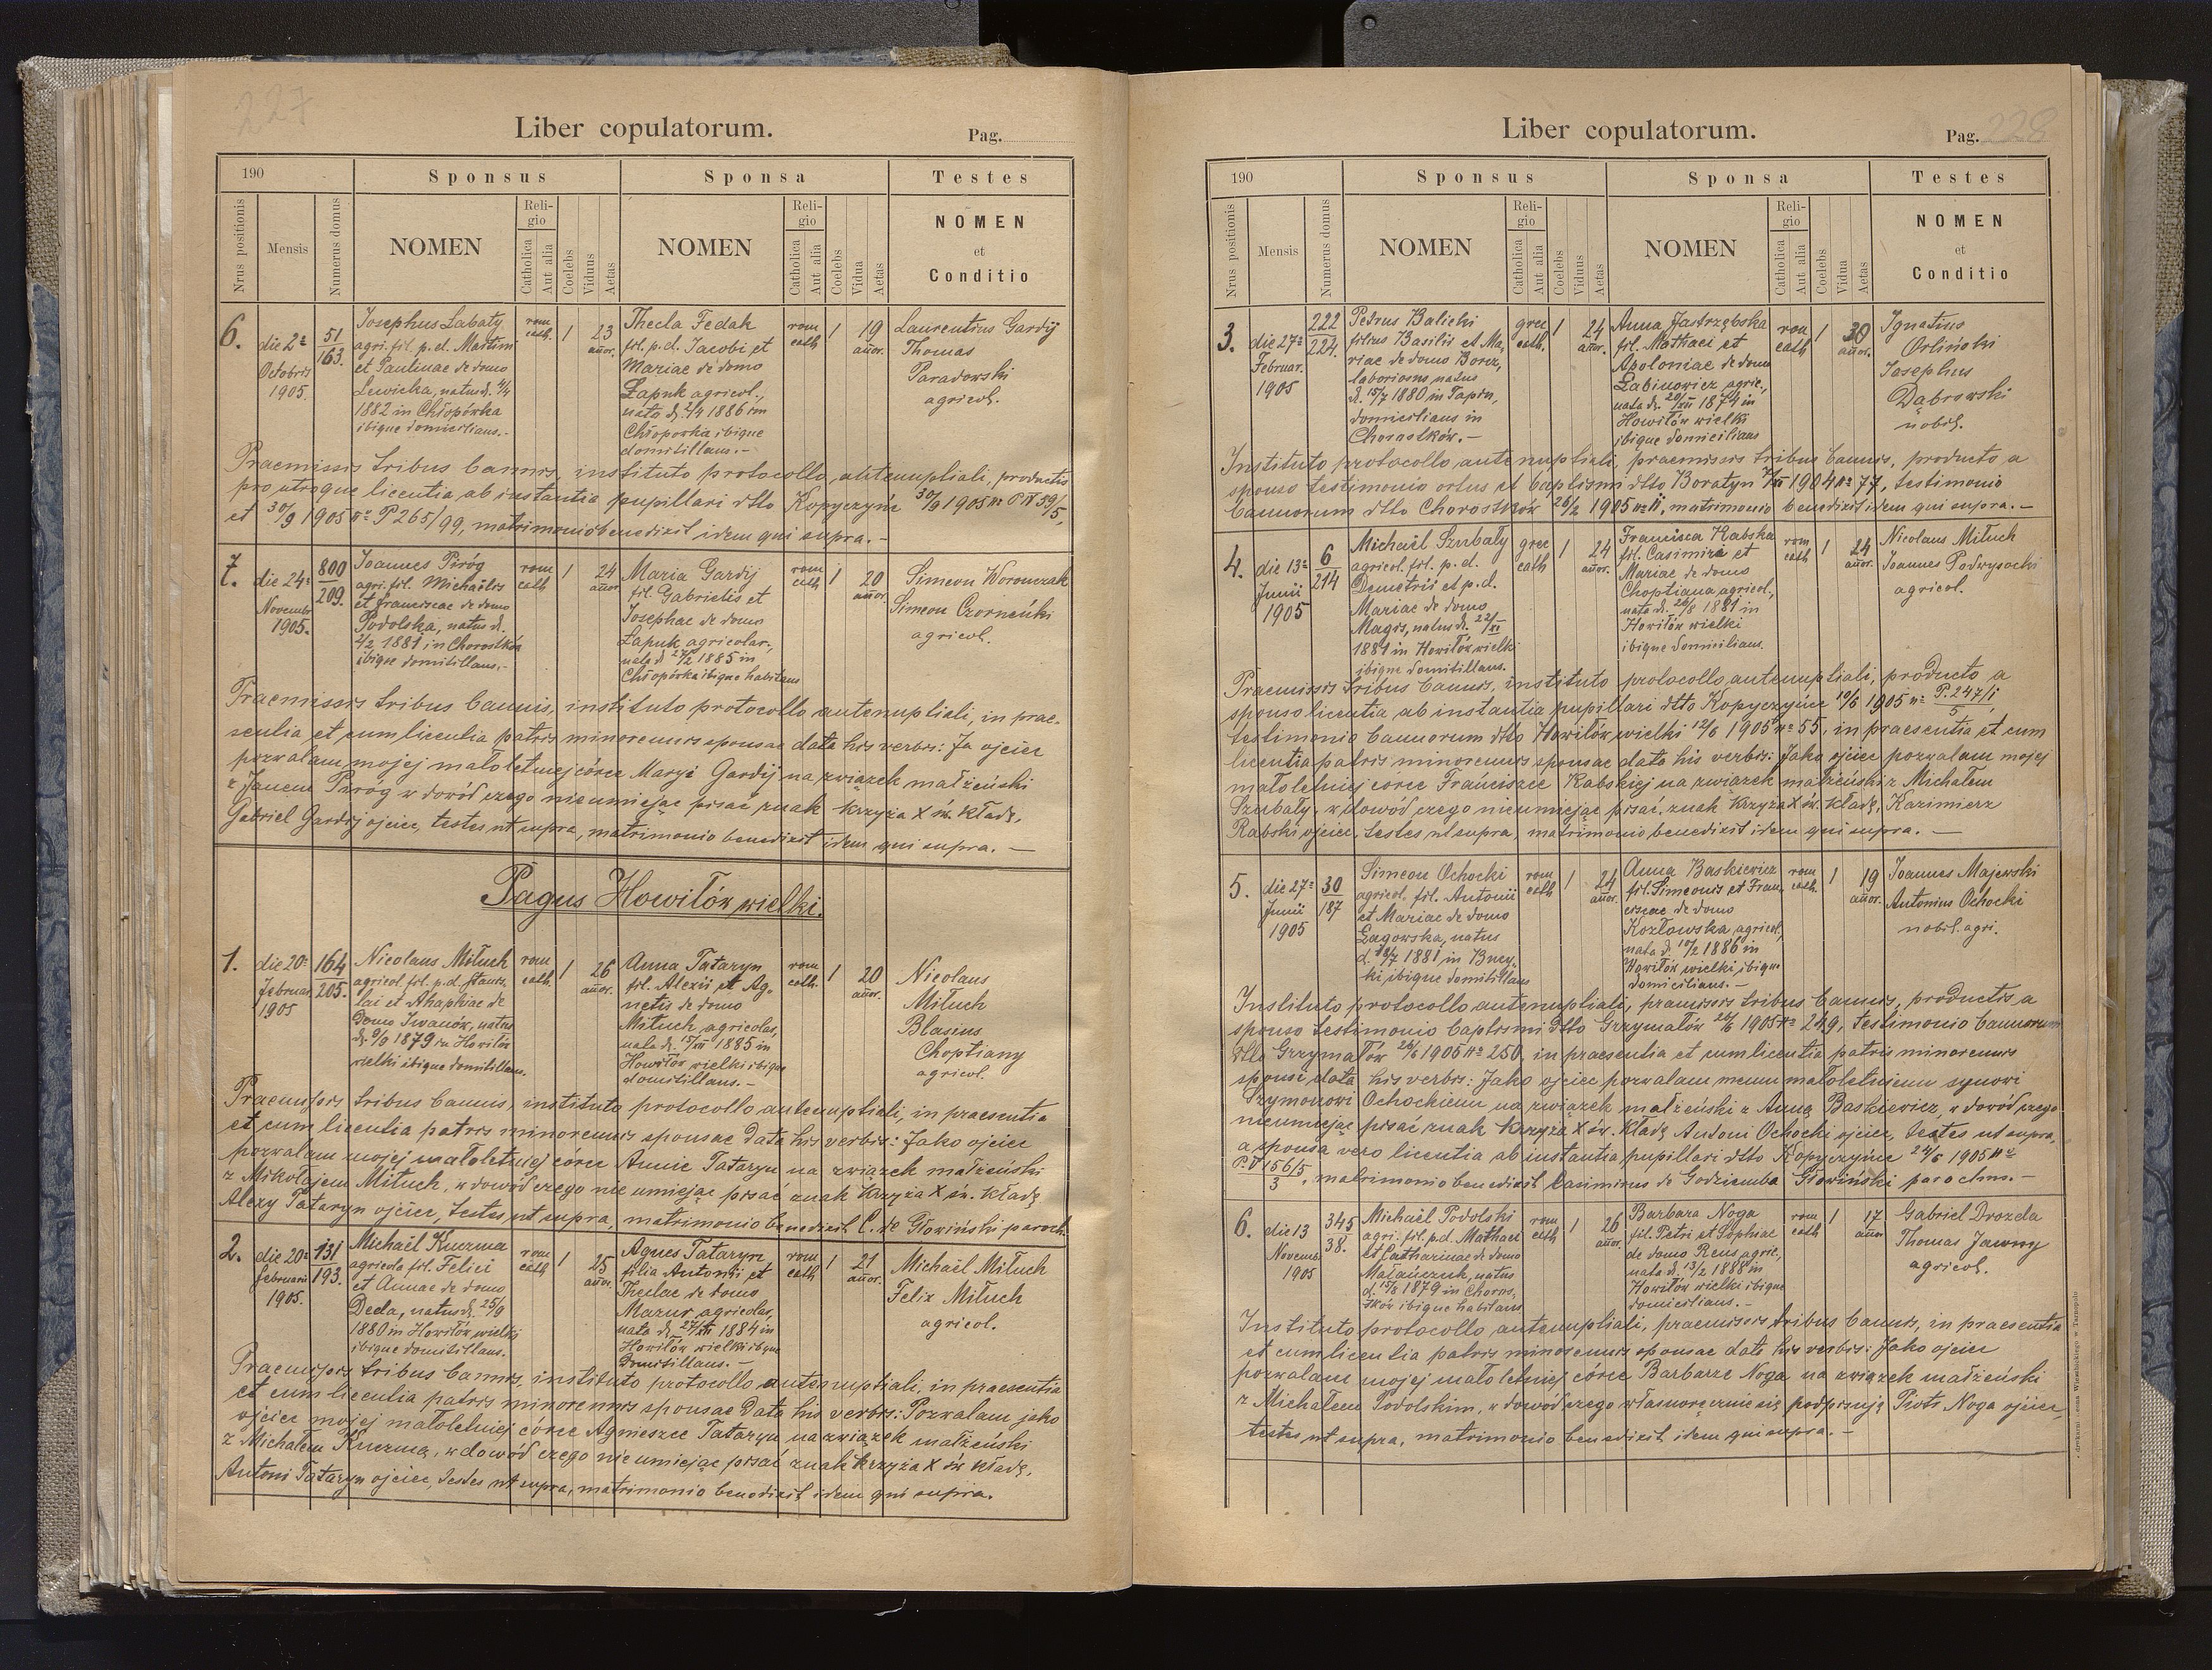 227
Liber copulatorum.
Pag.
190
Sponsus
Sponsa
Testes
Nrus positionis
Mensis
Numerus domus
NOMEN
Religio
Catholica
Aut alia
Coelebs
Viduus
Aetas
NOMEN
Religio
Catholica
Aut alia
Coelebs
Vidua
Aetas
NOMEN
et
Conditio
6.
die 2a
Octobris
1905.
51
163.
Josephus Labaty
agri. fil. p. d. Martini
et Paulinae de domo
Lewicka, natus d.
1882 in Chłopówka
ibique domicilians.-
rom
cath.
1
23
añor.
Thecla Fedak
fil. p. d. Jacobi et
Mariae de domo
Łapuk agricol.,
nata d. 2/9 1886 in
Chłopówka ibique
domitillans.-
rom
cath
1
19
añor.
Laurentius Gardij
Thomas
Paradowski
agricol.
Praemissis tribus bannis, instituto protocollo antenuptiali, productis
pro utroque licentia ab instantia pupillari dtto Kopyczyńce 30/9 1905 no P IV 59/5,
et 30/9 1905 no P 265/99, matrimonio benedixit idem qui supra.-
7.
die 24a
Novembr
1905.
800
209.
Joannes Piróg
agri. fil. Michaëlis
et Franciscae de domo
Podolska, natus d.
2/2 1881 in Chorostków
ibique domitillans.-
rom
cath
1
24
añor.
Maria Gardij
fil. Gabrielis et
Josephae de domo
Łapuk agricolar.,
nata d. 27/2 1885 in
Chłopówka ibique habitans
rom
cath
1
20
añor.
Simeon Woronczak
Simeon Czorneńki
agricol.
Praemissis tribus bannis, instituto protocollo antenuptiali, in prae-
sentia et cum licentia patris minorennis sponsae data his verbis: Ja ojciec
pozwalam mojej małoletniej córce Maryi Gardij na związek małżeński
z Janem Piróg w dowód czego nie umiejąc pisać znak krzyża X św. kładę,
Gabriel Gardij ojciec, testes ut supra, matrimonio benedixit idem qui supra. —
Pagus Howiłów wielki.
1.
die 20a
Februar.
1905
164
205.
Nicolaus Mituch
agricol. fil. p. d. Stanis-
lai et Ahaphiae de
domo Iwanów, natus
d. 9/9 1879 in Howiłów
wielki ibique domitillans.
rom
cath.
1
26
añor.
Anna Tataryn
fil. Alexii et Ag-
netis de domo
Mituch, agricolar,
nata d. 15/XII 1885 in
Howiłów wielki ibique
domitillans.-
rom
cath.
1
20
añor.
Nicolaus
Mituch
Blasius
Choptiany
agricol.
Praemissis tribus bannis, instituto protocollo antenuptiali, in praesentia
et cum licentia patris minorennis sponsae data his verbis: Jako ojciec
pozwalam mojej małoletniej córce Annie Tataryn na związek małżeński
z Mikołajem Mituch, w dowód czego nie umiejąc pisać znak krzyża X św. kładę
Alexy Tataryn ojciec, testes ut supra, matrimonio benedixit C. de Głowiński paroch.
2.
die 20a
Februarii
1905.
131
193.
Michaël Kuczma
agricola fil. Felici
et Annae de domo
Deda, natus d. 25/9
1880 in Howiłów wielki
ibique domitillans.
rom
cath
1
25
añor.
Agnes Tataryn
filia Antonii et
Theclae de domo
Mazur, agricolar,
nata d. 27/XII 1884 in
Howiłów wielki ibique
domitillans.-
rom
cath
1
21
añor.
Michaël Mituch
Felix Mituch
agricol.
Praemissis tribus bannis, instituto protocollo antenuptiali, in praesentia
et cum licentia patris minorennis sponsae data his verbis: Pozwalam jako
ojciec mojej małoletniej córce Agnieszce Tataryn na związek małżeński
z Michałem Kuczmą, w dowód czego nie umiejąc pisać znak krzyża X św. kładę,
Antoni Tataryn ojciec, testes ut supra, matrimonio benedixit idem qui supra.
Liber copulatorum.
Pag. 228
190
Sponsus
Sponsa
Testes
Nrus positionis
Mensis
Numerus domus
NOMEN
Religio
Catholica
Aut alia
Coelebs
Viduus
Aetas
NOMEN
Religio
Catholica
Aut alia
Coelebs
Vidua
Aetas
NOMEN
et
Conditio
3.
die 27a
Februar.
1905
222
224.
Petrus Balicki
filius Basilii et Ma-
riae de domo Borcz,
laboriosus natus
d. 15/7 1880 in
domicilians in
Chorostków.-
grec
cath.
1
24
añor.
Anna Jastrzębska
fil. Mathaei et
Apoloniae de domo
Łabinowicz agric.,
nata d. 20/XII 1874 in
Howiłów wielki
ibique domicilians
rom
cath
1
30
añor.
Ignatius
Orliński
Josephus
Dąbrowski
nobil.
Instituto protocollo antenuptiali, praemissis tribus bannis, producto a
sponso testimonio ortus et baptismi dtto Boratyn 1904 no 77, testimonio
bannorum dtto Chorostków 26/2 1905 no 11, matrimonio benedixit idem qui supra.-
4.
die 13a
Junii
1905
6
214
Michaël Szubały
agricol. fil. p. d.
Demetrii et p. d.
Mariae de domo
Magis, natus d. 22/XI
1881 in Howiłów wielki
ibique domitillans.
grec
cath
1
24
añor.
Francisca Rabska
fil. Casimiri et
Mariae de domo
Choptiana agricol.,
nata d. 26/8 1881 in
Howiłów wielki
ibique domicilians.
rom
cath
1
24
añor.
Nicolaus Mituch
Joannes Podwysocki
agricol.
Praemissis tribus bannis, instituto protocollo antenuptiali, producto a
sponso licentia ab instantia pupillari dtto Kopyczyńce 10/6 1905 no P. 247/1/5,
testimonio bannorum dtto Howiłów wielki 12/6 1905 no 55, in praesentia et cum
licentia patris minorennis sponsae data his verbis: Jako ojciec pozwalam mojej
małoletniej córce Franciszce Rabskiej na związek małżeński z Michałem
Szubały, w dowód czego nie umiejąc pisać, znak krzyża X św. kładę, Kazimierz
Rabski ojciec, testes ut supra, matrimonio benedixit idem qui supra. —
5.
die 27a
Junii
1905
30
187
Simeon Ochocki
agricol. fil. Antonii
et Mariae de domo
Łagowska, natus
d. 18/7 1881 in Bucy-
ki ibique domitillans
rom
cath
1
24
añor.
Anna Baskiewicz
fil. Simeonis et Fran-
ciscae de domo
Kozłowska, agricol,
nata d. 10/2 1886 in
Howiłów wielki, ibique
domicilians.-
rom
cath.
1
19
añor.
Joannes Majewski
Antonius Ochocki
nobil. agri.
Instituto protocollo antenuptiali, praemissis tribus bannis, productis a
sponso testimonio baptismi dtto Grzymałów 26/6 1905 no 249, testimonio bannorum
dtto Grzymałów 26/6 1905 no 250, in praesentia et cum licentia patris minorennis
sponsi data his verbis: Jako ojciec pozwalam memu małoletniemu synowi
Szymonowi Ochockiemu na związek małżeński z Anną Baskiewicz, w dowód czego
nieumiejąc pisać znak krzyża X św. kładę Antoni Ochocki ojciec, testes ut supra,
a sponsa vero licentia ab instantia pupillari dtto Kopyczyńce 24/6 1905 no
P. V 156/5/3, matrimonio benedixit Casimirus de Godziemba Głowiński parochus.-
6.
die 13
Novemb.
1905
345
38.
Michaël Podolski
agri. fil. p. d. Mathaei
et Catharinae de domo
Małańczuk, natus
d. 15/8 1879 in Choros-
tków ibique habitans
rom
cath
1
26
añor.
Barbara Noga
fil. Petri et Sophiae
de domo Reus, agric.,
nata d. 13/2 1888 in
Howiłów wielki ibique
domicilians.-
rom
cath.
1
17
añor
Gabriel Drozda
Thomas Jawny
agricol.
Instituto protocollo antenuptiali, praemissis tribus bannis, in praesentia
et cum licentia patris minorennis sponsae data his verbis: Jako ojciec
pozwalam mojej małoletniej córce Barbarze Noga na związek małżeński
z Michałem Podolskim, w dowód czego własnoręcznie się podpisuję Piotr Noga ojciec,
testes ut supra, matrimonio benedixit idem qui supra.-